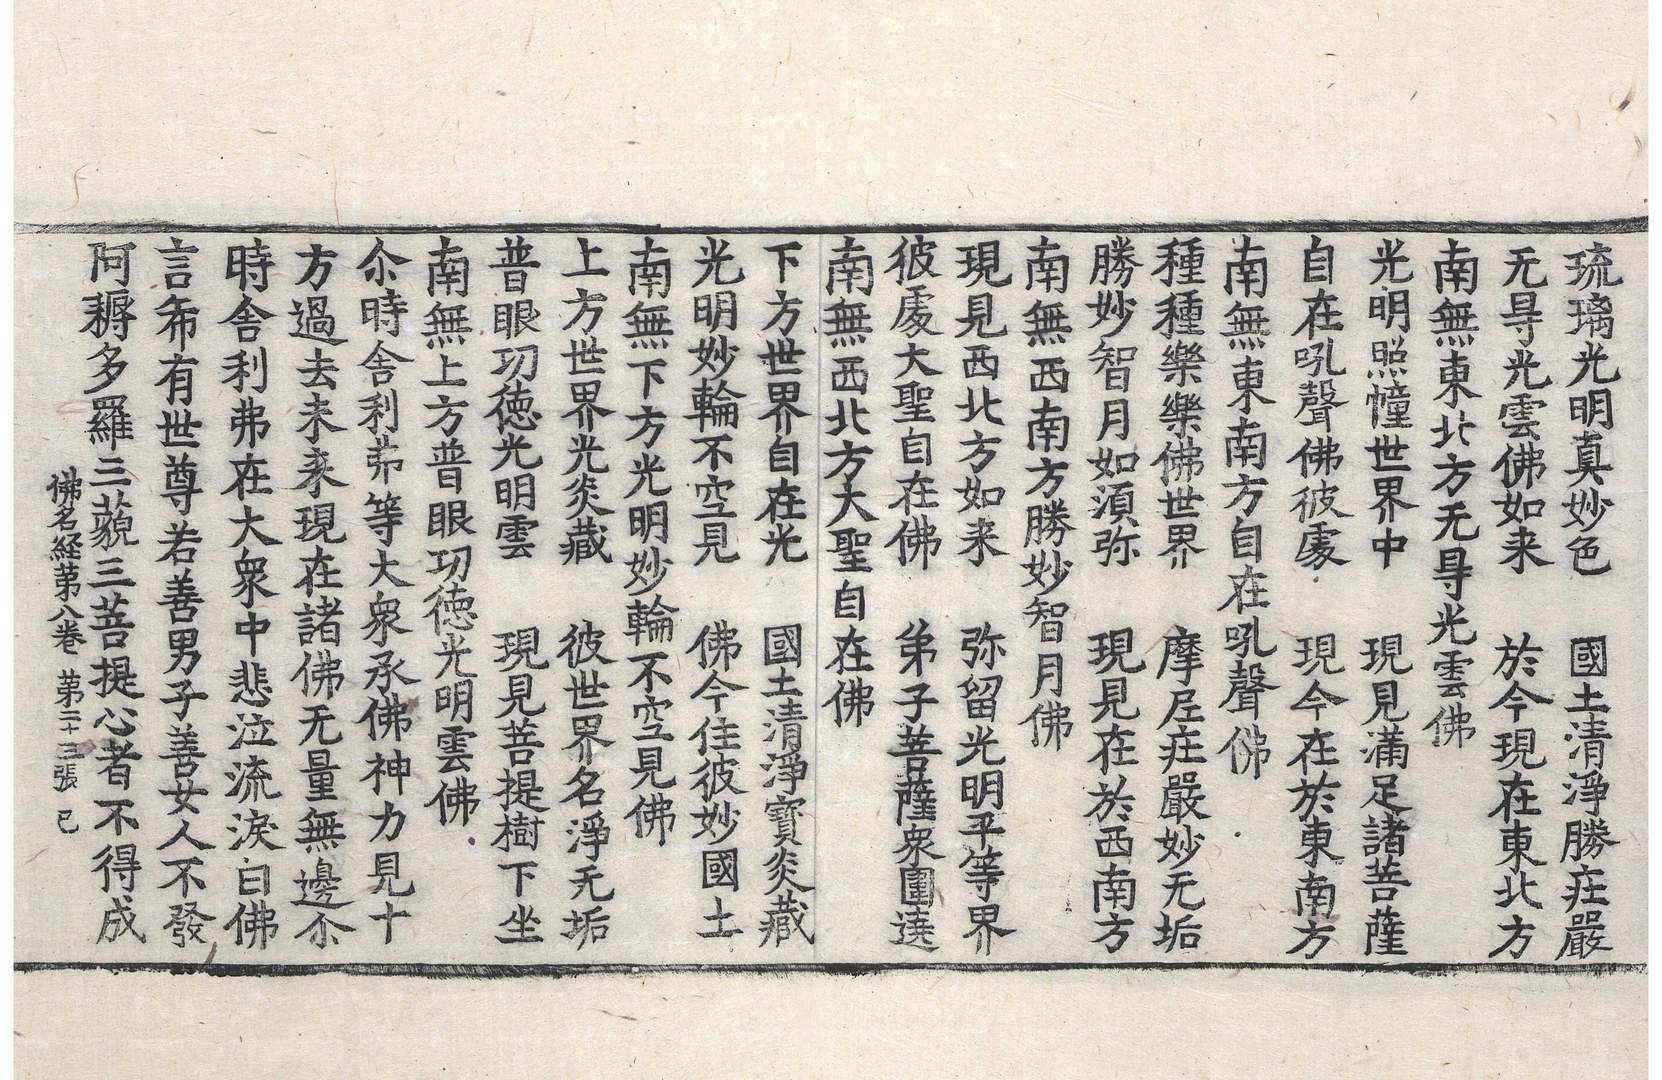 琉璃光明真妙色　國土清淨勝庄嚴
无㝵光雲佛如来　於今現在東北方
南無東北方无㝵光雲佛
光明照幢世界中　現見滿足諸菩薩
自在吼聲佛彼䖏　現今在於東南方
南無東南方自在吼聲佛
種種樂樂佛世界　摩尼庄嚴妙无垢
勝妙智月如湏弥　現見在於西南方
南無西南方勝妙智月佛
現見西北方如来　弥留光明平等界
彼䖏大聖自在佛　弟子菩薩衆圍遶
南無西北方大聖自在佛
下方世界自在光　國土清淨寶炎藏
光明妙輪不空見　佛今住彼妙國土
南無下方光明妙輪不空見佛
上方世界光炎藏　彼世界名淨无垢
普眼功徳光明雲　現見菩提樹下坐
南無上方普眼功徳光明雲佛
尒時舎利弗等大衆承佛神力見十
方過去未来現在諸佛无量無邊尒
時舎利弗在大衆中悲泣流淚白佛
言希有世尊若善男子善女人不發
阿耨多羅三藐三菩提心者不得成
佛名経苐八卷　苐二十三張　已